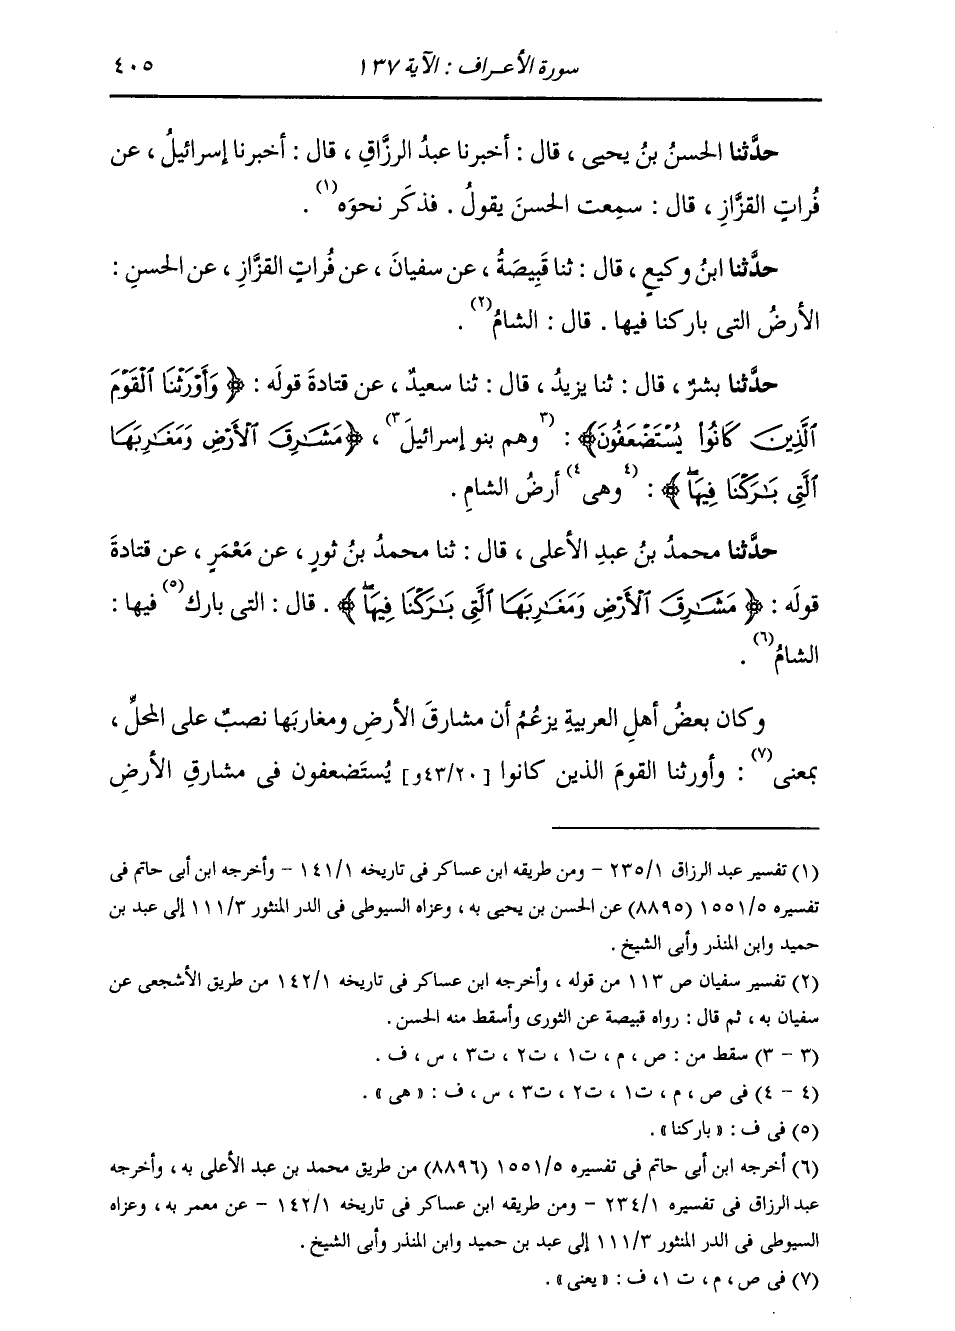 سورة الأعراف : الآية ١٣٧ ٤٠٥
حدَّثنا الحسنُ بنُ يحيى ، قال : أخبرنا عبدُ الرزَّاقِ ، قال : أخبرنا إسرائيلُ ، عن
فُراتٍ القزَّازِ ، قال : سمِعت الحسنَ يقولُ . فذكَر نحوَه(١) .
حدَّثنا ابنُ وكيعٍ ، قال : ثنا قَبِيصَةُ ، عن سفيانَ ، عن فُراتٍ القزَّازِ ، عن الحسنِ :
الأرضُ التى باركنا فيها . قال : الشامُ(٢) .
حدَّثنا بشرٌ ، قال : ثنا يزيدُ ، قال : ثنا سعيدٌ ، عن قتادةَ قولَه : ﴿ وَأَوْرَثْنَا ٱلْقَوْمَ
ٱلَّذِينَ كَانُوا۟ يُسْتَضْعَفُونَ﴾ : (٣وهم بنو إسرائيلَ٣) ، ﴿مَشَـٰرِقَ ٱلْأَرْضِ وَمَغَـٰرِبَهَا
ٱلَّتِى بَـٰرَكْنَا فِيهَاۖ ﴾ : (٤وهى٤) أرضُ الشامِ .
حدَّثنا محمدُ بنُ عبدِ الأعلى ، قال : ثنا محمدُ بنُ ثورٍ ، عن مَعْمَرٍ ، عن قتادةَ
قولَه : ﴿ مَشَـٰرِقَ ٱلْأَرْضِ وَمَغَـٰرِبَهَا ٱلَّتِى بَـٰرَكْنَا فِيهَاۖ ﴾ . قال : التى بارك(٥) فيها :
الشامُ(٦) .
وكان بعضُ أهلِ العربيةِ يزعُمُ أن مشارقَ الأرضِ ومغاربَها نصبٌ على المحلِّ ،
بمعنى(٧) : وأورثنا القومَ الذين كانوا [٤٣/٢٠و] يُستَضعفون فى مشارقِ الأرضِ
(١) تفسير عبد الرزاق ٢٣٥/١ - ومن طريقه ابن عساكر فى تاريخه ١٤١/١ - وأخرجه ابن أبى حاتم فى
تفسيره ١٥٥١/٥ (٨٨٩٥) عن الحسن بن يحيى به ، وعزاه السيوطى فى الدر المنثور ١١١/٣ إلى عبد بن
حميد وابن المنذر وأبى الشيخ .
(٢) تفسير سفيان ص ١١٣ من قوله ، وأخرجه ابن عساكر فى تاريخه ١٤٢/١ من طريق الأشجعى عن
سفيان به ، ثم قال : رواه قبيصة عن الثورى وأسقط منه الحسن .
(٣ - ٣) سقط من : ص ، م ، ت١ ، ت٢ ، ت٣ ، س ، ف .
(٤ - ٤) فى ص ، م ، ت١ ، ت٢ ، ت٣ ، س ، ف : « هى » .
(٥) فى ف : « باركنا » .
(٦) أخرجه ابن أبى حاتم فى تفسيره ١٥٥١/٥ (٨٨٩٦) من طريق محمد بن عبد الأعلى به ، وأخرجه
عبد الرزاق فى تفسيره ٢٣٤/١ - ومن طريقه ابن عساكر فى تاريخه ١٤٢/١ - عن معمر به ، وعزاه
السيوطى فى الدر المنثور ١١١/٣ إلى عبد بن حميد وابن المنذر وأبى الشيخ .
(٧) فى ص ، م ، ت ١ ، ف : « يعنى » .